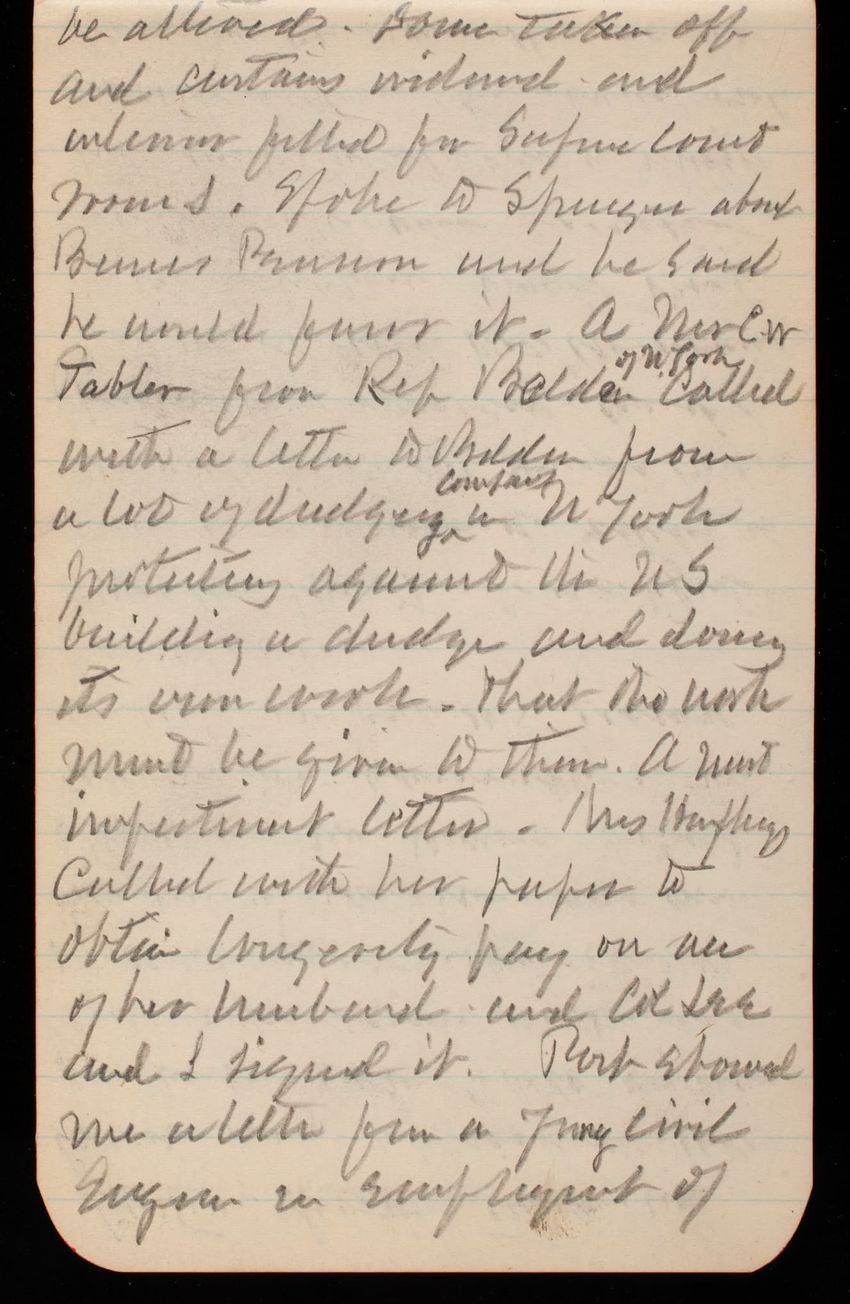 be allowed. Some taken off
and curtains widened and
filled for Supreme Court
rooms. Spoke to Sprague about
Pension and he said
he would favor it. A Mr C W
of N. York
Tabler from Rep Belden Called
with a letter to Belden from
company
a lot of dredging in N York
protesting against the US
building a dredge and doing
its own work. That the work
must be given to them. A most
impertinent letter. Mrs
Called with her paper to
obtain longevity pay on acc
of her husband and Col Lee
and I signed it. Post showed
me a letter from a young Civil
Engineer in employment of